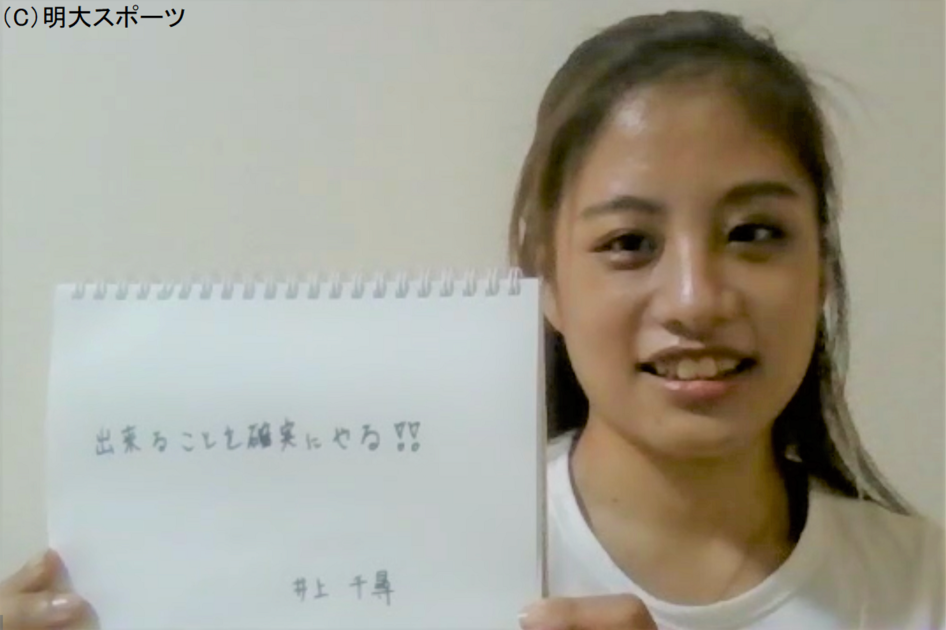 (C)明大スポーツ
出来ることを確実にやる!!
井上 千尋